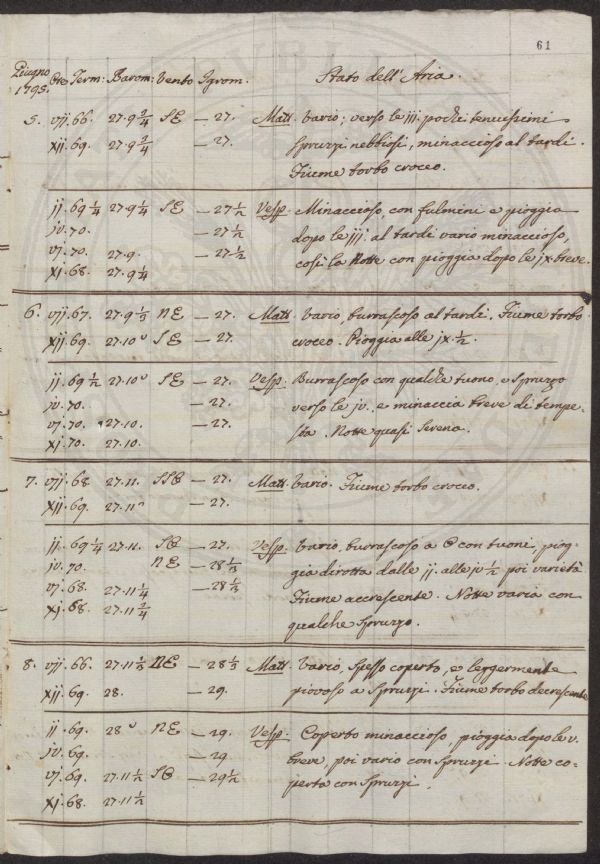 61
Giugno 1795. Ore Term: Barom: Vento Igrom. Stato dell' Aria.
5. vij. 66. 27.9 3/4 SE — 27. Matt. Vario; verso le iij. pochi tenuissimi
xij. 69. 27.9 3/4 — 27. spruzzi nebbiosi, minaccioso al tardi.
Fiume torbo croceo.
ij. 69 1/4 27.9 1/4 SE — 27 1/2 Vesp. Minaccioso, con fulmini e pioggia
iv. 70. — 27 1/2 dopo le iij. al tardi vario minaccioso,
vj. 70. 27.9. — 27 1/2 così la Notte con pioggia dopo le jx. breve.
xj. 68. 27.9 1/4
6. vij. 67. 27.9 1/3 NE — 27. Matt. Vario, burrascoso al tardi. Fiume torbo
xij. 69. 27.10 SE — 27. croceo. Pioggia alle jx. 1/2.
ij. 69 1/2 27.10 SE — 27. Vesp. Burrascoso con qualche tuono, e spruzzo
iv. 70. — 27. verso le jv. e minaccia breve di tempe-
vj. 70 27.10. — 27. sta. Notte quasi Serena.
xj. 70. 27.10.
7. vij. 68 27.11. — 27. Matt. Vario. Fiume torbo croceo.
xij. 69. 27.11 — 27.
ij. 69 1/4 27.11. SE — 27. Vesp. Vario, burrascoso a con tuoni, piog-
jv. 70. NE — 28 1/3 gia dirotta dalle ij. alle jv 1/2 poi varietà
vj. 68. 27.11 1/4 — 28 1/3 Fiume accrescente. Notte varia con
xj. 68. 27.11 3/4 qualche spruzzo.
8. vij. 66. 27.11 1/3 NE — 28 1/3 Matt. Vario, spesso coperto, e leggermente
xij. 69 28. — 29. piovoso a spruzzi. Fiume torbo decrescente
ij. 69. 28 NE — 29. Vesp. Coperto minaccioso, pioggia dopo le v.
jv. 69. — 29 breve, poi vario con spruzzi. Notte co-
vj. 69. 27.11 1/2 SE — 29 1/2 perta con spruzzi.
xj. 68. 27.11 1/2